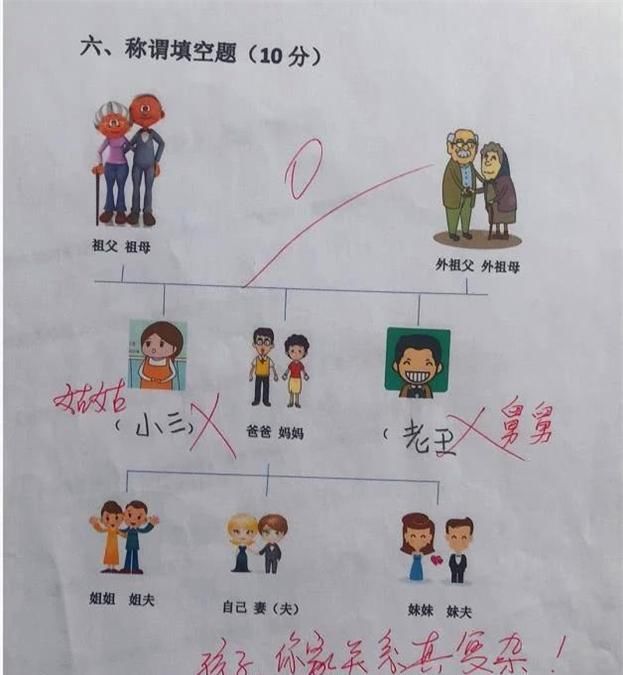 六、称谓填空题（10 分）
0
祖父 祖母
外祖父 外祖母
姑姑
（小三）
爸爸 妈妈
（老王
舅舅
姐姐 姐夫
自己 妻（夫）
妹妹 妹夫
孩子，你家关系真复杂！